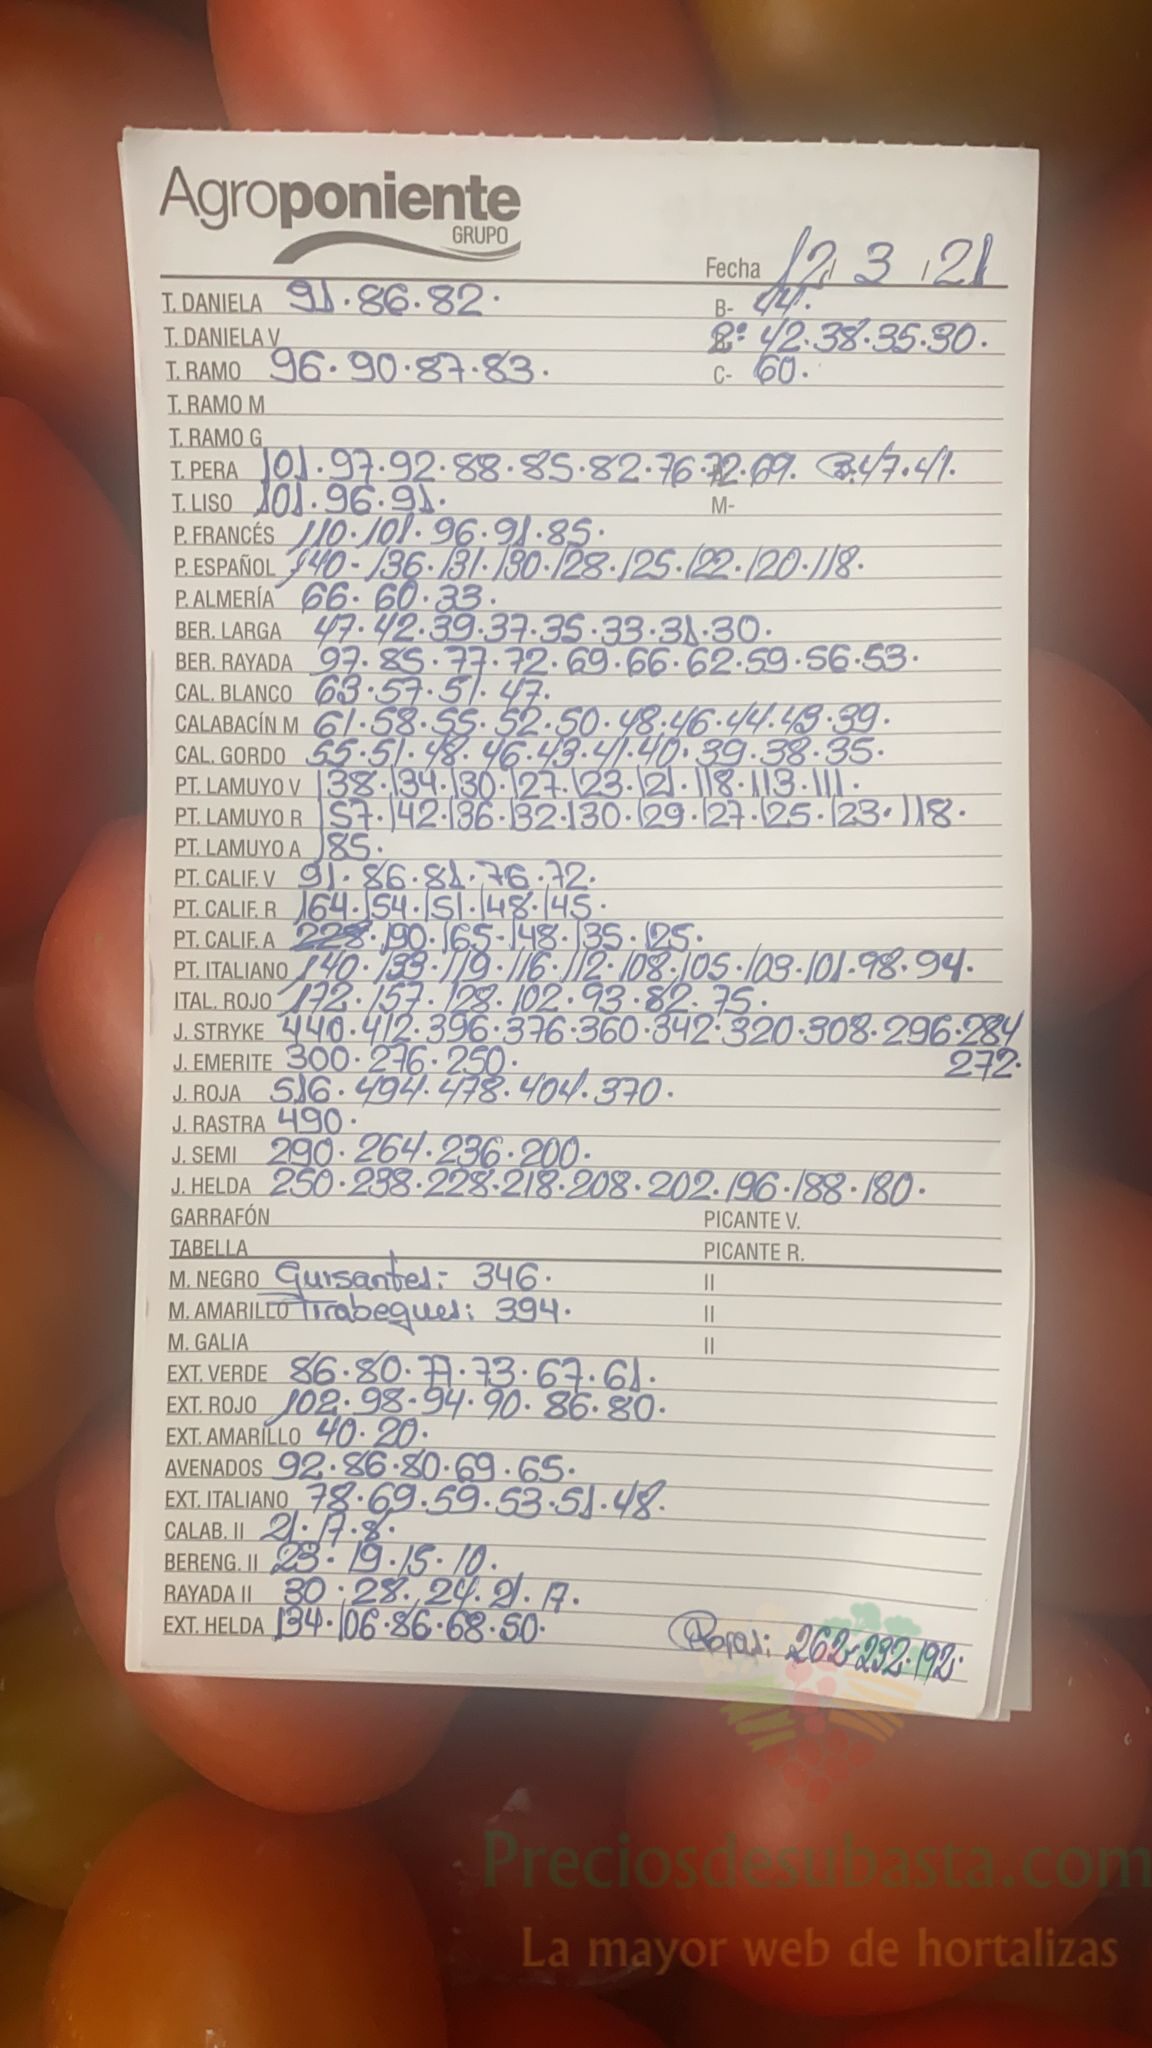 Agroponiente
GRUPO
Fecha 12, 3, 21
T. DANIELA 91·86·82· B- 44·
T. DANIELA V 2ª 42·38·35·30·
T. RAMO 96·90·87·83· C- 60·
T. RAMO M
T. RAMO G
T. PERA 101·97·92·88·85·82·76·72·69· 47·41·
T. LISO 101·96·91· M-
P. FRANCÉS 110·101·96·91·85·
P. ESPAÑOL 140-136·131·130·128·125·122·120·118·
P. ALMERÍA 66·60·33·
BER. LARGA 47·42·39·37·35·33·31·30·
BER. RAYADA 97·85·77·72·69·66·62·59·56·53·
CAL. BLANCO 63·57·51·47·
CALABACÍN M 61·58·55·52·50·48·46·44·43·39·
CAL. GORDO 55·51·48·46·43·41·40·39·38·35·
PT. LAMUYO V 138·134·130·127·123·121·118·113·111·
PT. LAMUYO R 157·142·136·132·130·129·127·125·123·118·
PT. LAMUYO A 185·
PT. CALIF. V 91·86·81·76·72·
PT. CALIF. R 164·154·151·148·145·
PT. CALIF. A 228·190·165-148·135·125·
PT. ITALIANO 140·133·119·116·112·108·105·103·101·98·94·
ITAL. ROJO 172·157·128·102·93·82·75·
J. STRYKE 440·412·396·376·360·342·320·308·296·284
J. EMERITE 300·276·250· 272·
J. ROJA 516·494·478·404·370·
J. RASTRA 490·
J. SEMI 290·264·236·200·
J. HELDA 250·238·228·218·208·202·196·188·180·
GARRAFÓN PICANTE V.
TABELLA PICANTE R.
M. NEGRO Guisantes: 346· II
M. AMARILLO Tirabeques: 394· II
M. GALIA II
EXT. VERDE 86·80·77·73·67·61·
EXT. ROJO 102·98-94·90·86·80·
EXT. AMARILLO 40·20·
AVENADOS 92·86·80·69·65·
EXT. ITALIANO 78·69·59·53·51·48·
CALAB. II 21·17·8·
BERENG. II 23·19·15·10·
RAYADA II 30·28·24·21·17·
EXT. HELDA 134·106·86·68·50·
262·232·192·
Preciosdesubasta.com
La mayor web de hortalizas